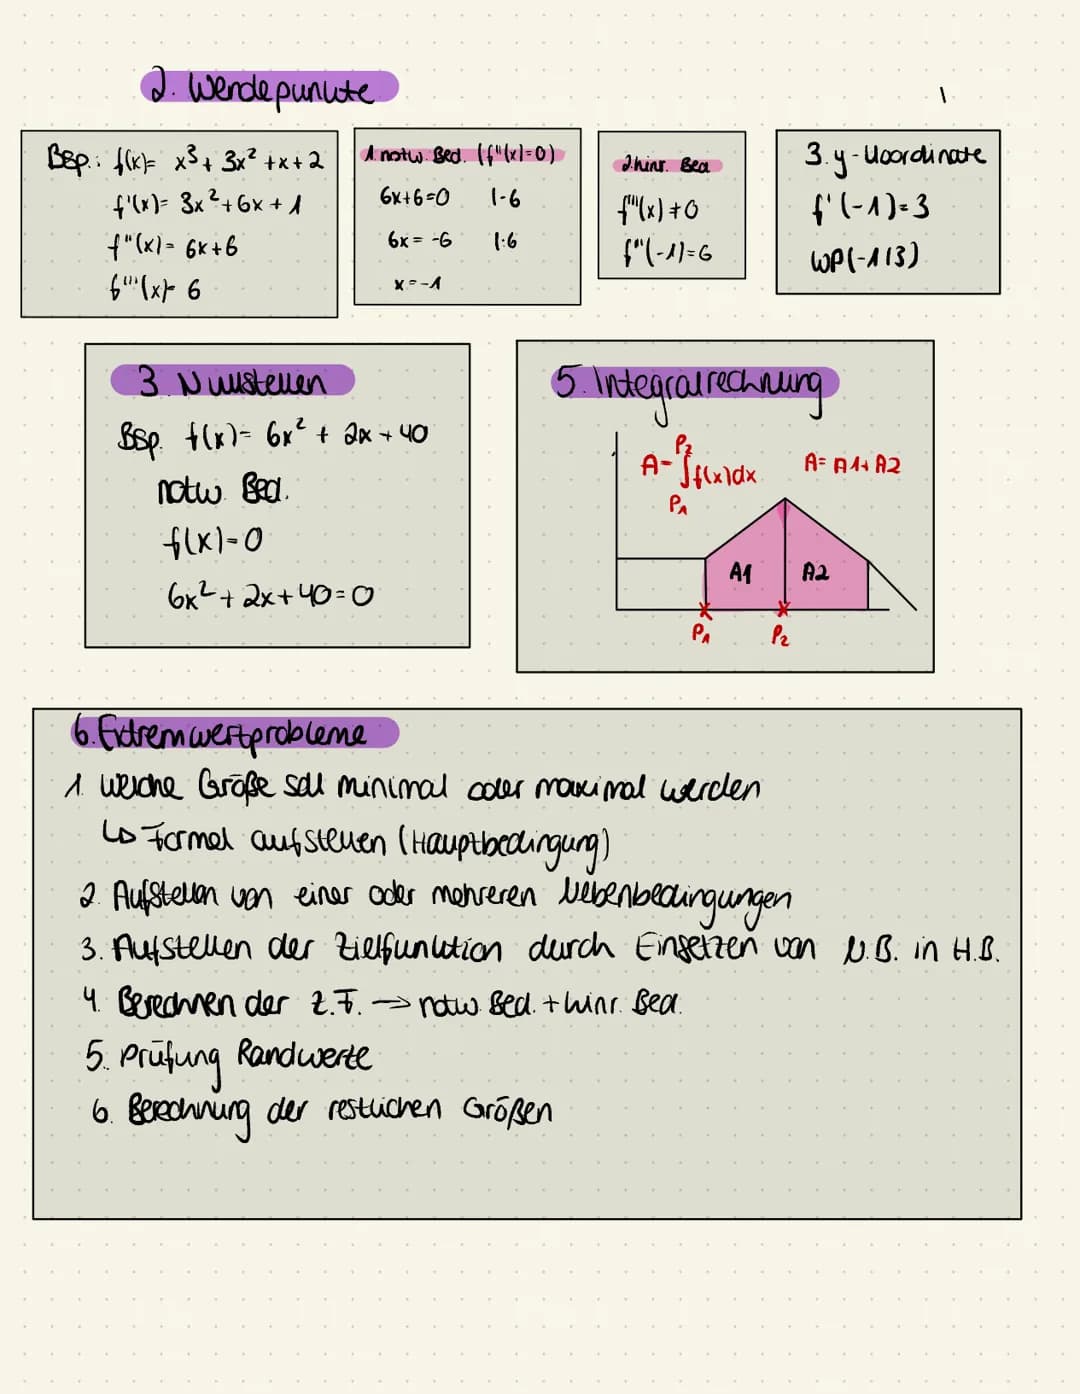 2. Wendepunkte
Bsp.: f(x)= x³+ 3x² +x+2
f'(x)= 3x²+6x+1
f"(x)= 6x+6
f'''(x)= 6
1. notw. Bed. (f"(x)=0)
6x+6=0 |-6
6x= -6 |:6
x=-1
2. hinr. Bed
f'''(x)≠0
f'''(-1)=6
3. y-Koordinate
f'(-1)=3
WP(-1|3)
3. Nullstellen
Bsp. f(x)= 6x² + 2x+40
notw. Bed.
f(x)=0
6x²+2x+40=0
5. Integralrechnung
P₂
A=∫f(x)dx
P₁
A= A1+A2
A1 A2
P₁ P₂
6. Extremwertprobleme
1. welche Größe soll minimal oder maximal werden
↳ Formel aufstellen (Hauptbedingung)
2. Aufstellen von einer oder mehreren Nebenbedingungen
3. Aufstellen der Zielfunktion durch Einsetzen von N.B. in H.B.
4. Berechnen der Z.F. → notw. Bed. + hinr. Bed.
5. Prüfung Randwerte
6. Berechnung der restlichen Größen